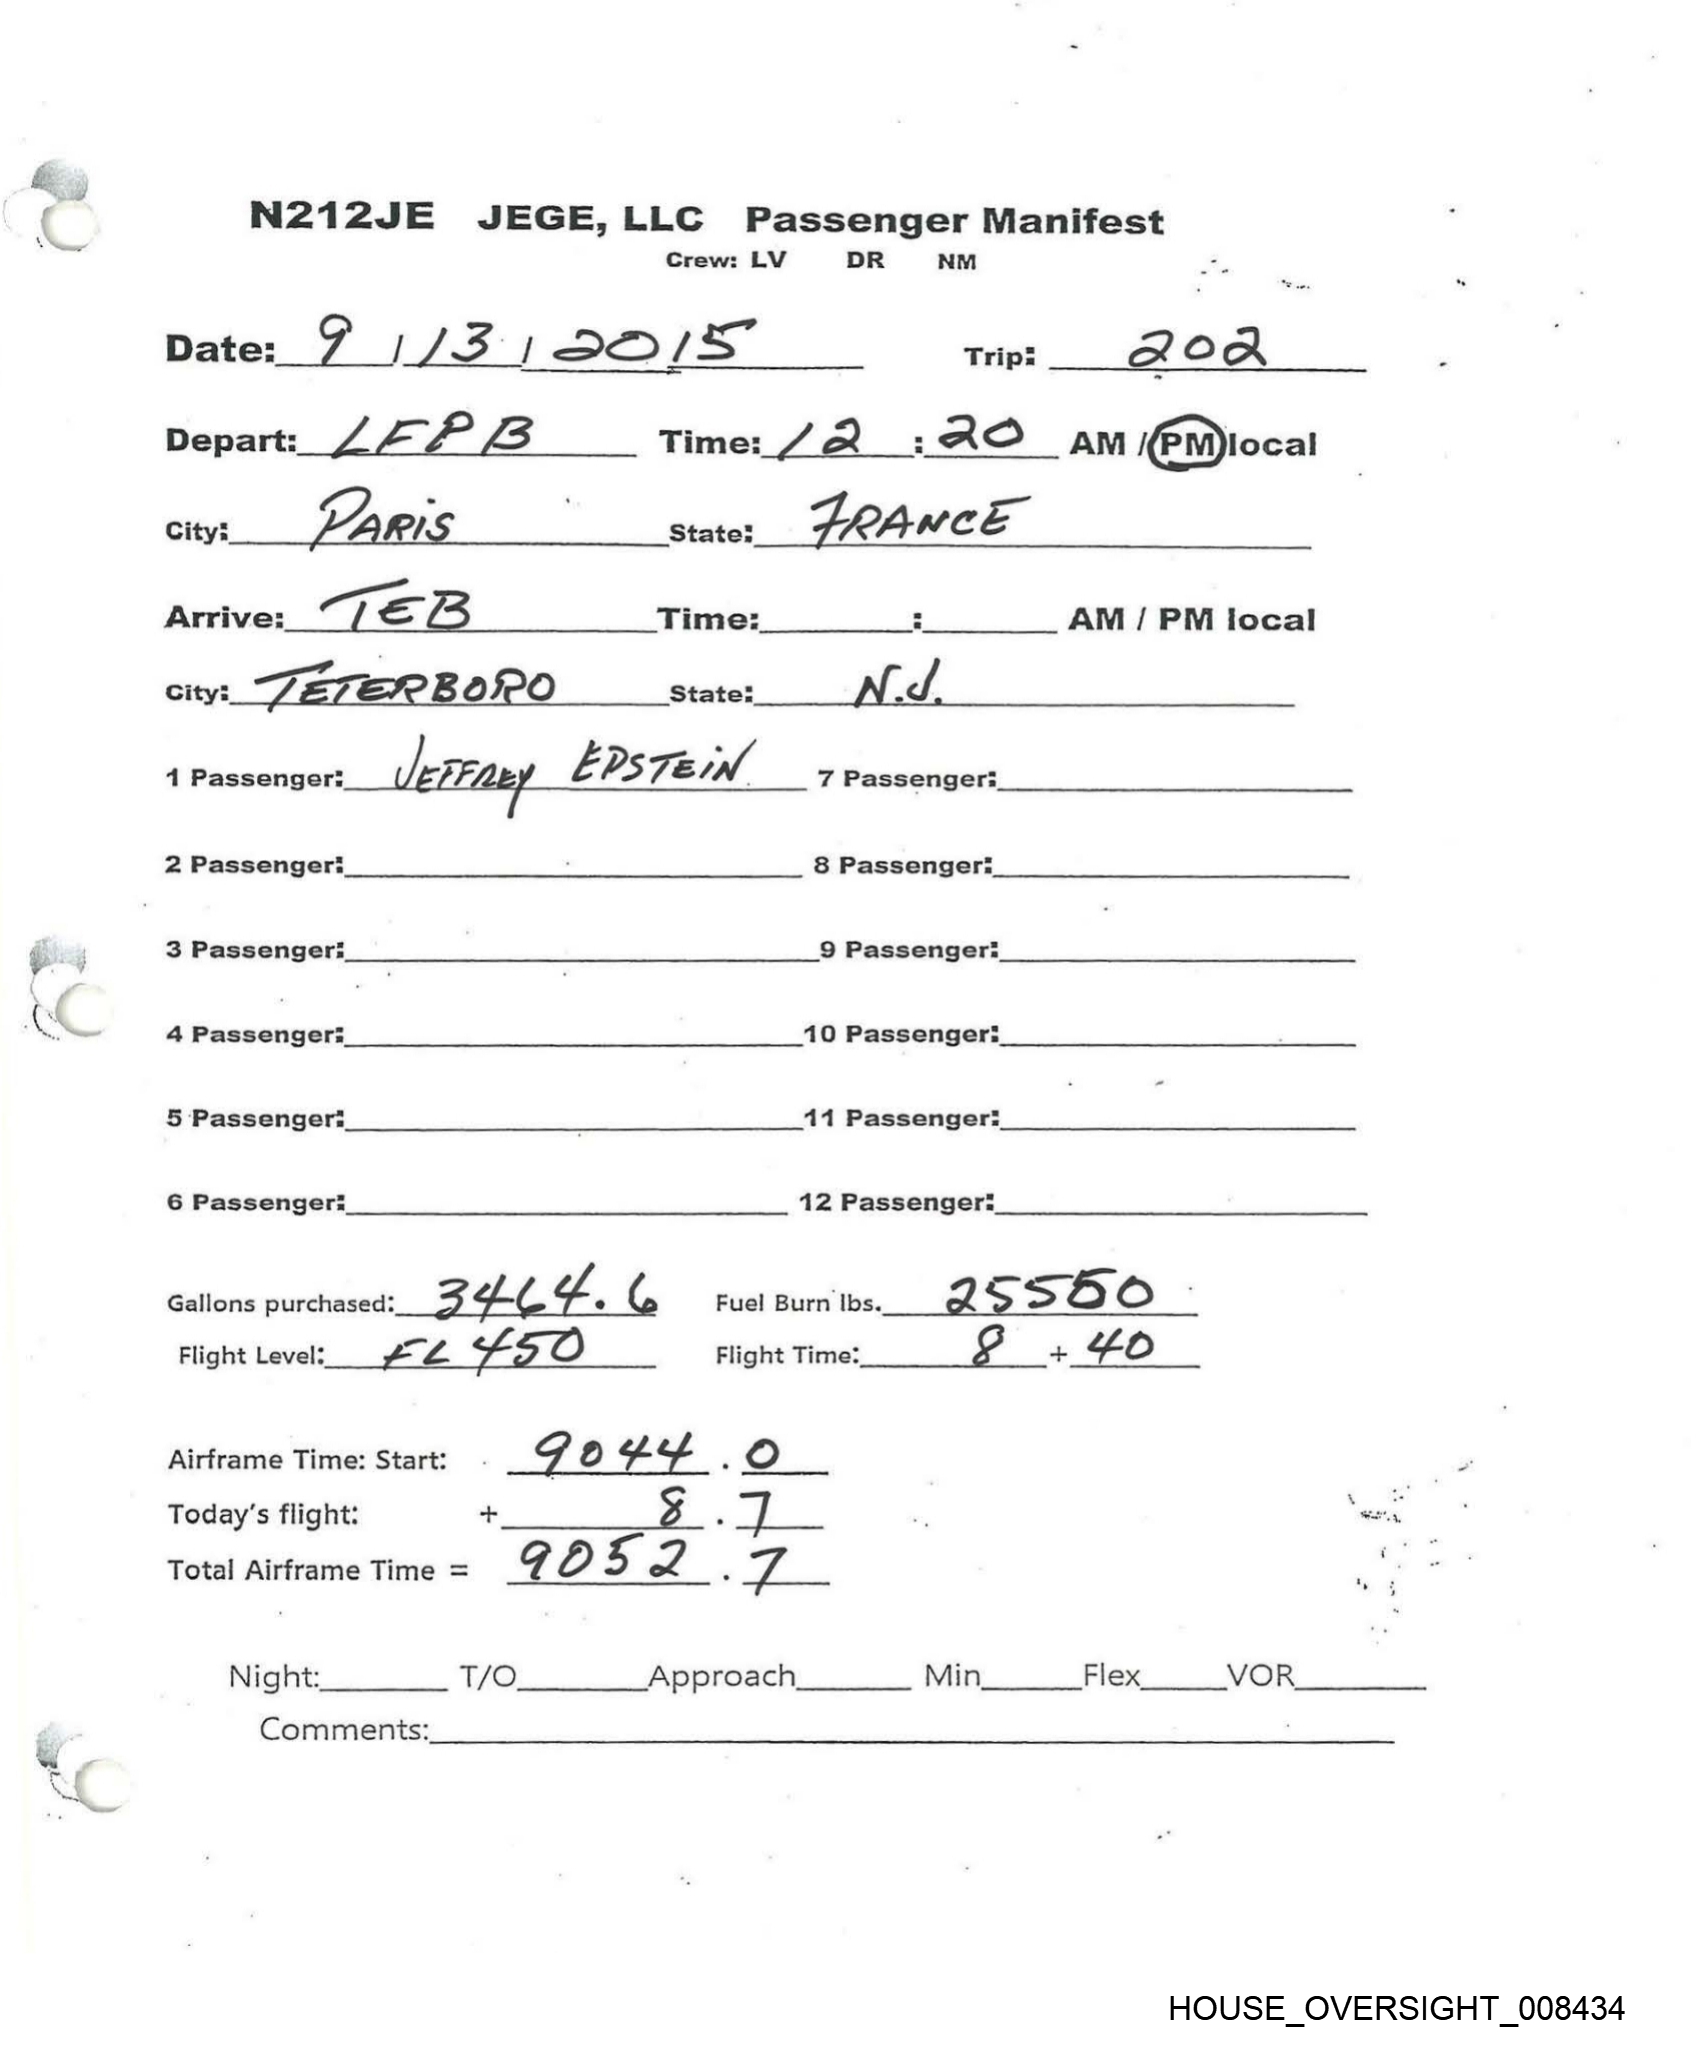 N212JE JEGE, LLC Passenger Manifest
Crew: LV DR NM
Date: 9 / 13 / 2015 Trip: 202
Depart: LFPB Time: 12 : 20 AM / PM local
City: PARIS State: FRANCE
Arrive: TEB Time: : AM / PM local
City: TETERBORO State: N.J.
1 Passenger: JEFFREY EPSTEIN 7 Passenger:
2 Passenger: 8 Passenger:
3 Passenger: 9 Passenger:
4 Passenger: 10 Passenger:
5 Passenger: 11 Passenger:
6 Passenger: 12 Passenger:
Gallons purchased: 3464.6 Fuel Burn lbs. 25550
Flight Level: FL 450 Flight Time: 8 + 40
Airframe Time: Start: 9044 . 0
Today's flight: + 8 . 7
Total Airframe Time = 9052 . 7
Night: T/O Approach Min Flex VOR
Comments:
HOUSE_OVERSIGHT_008434